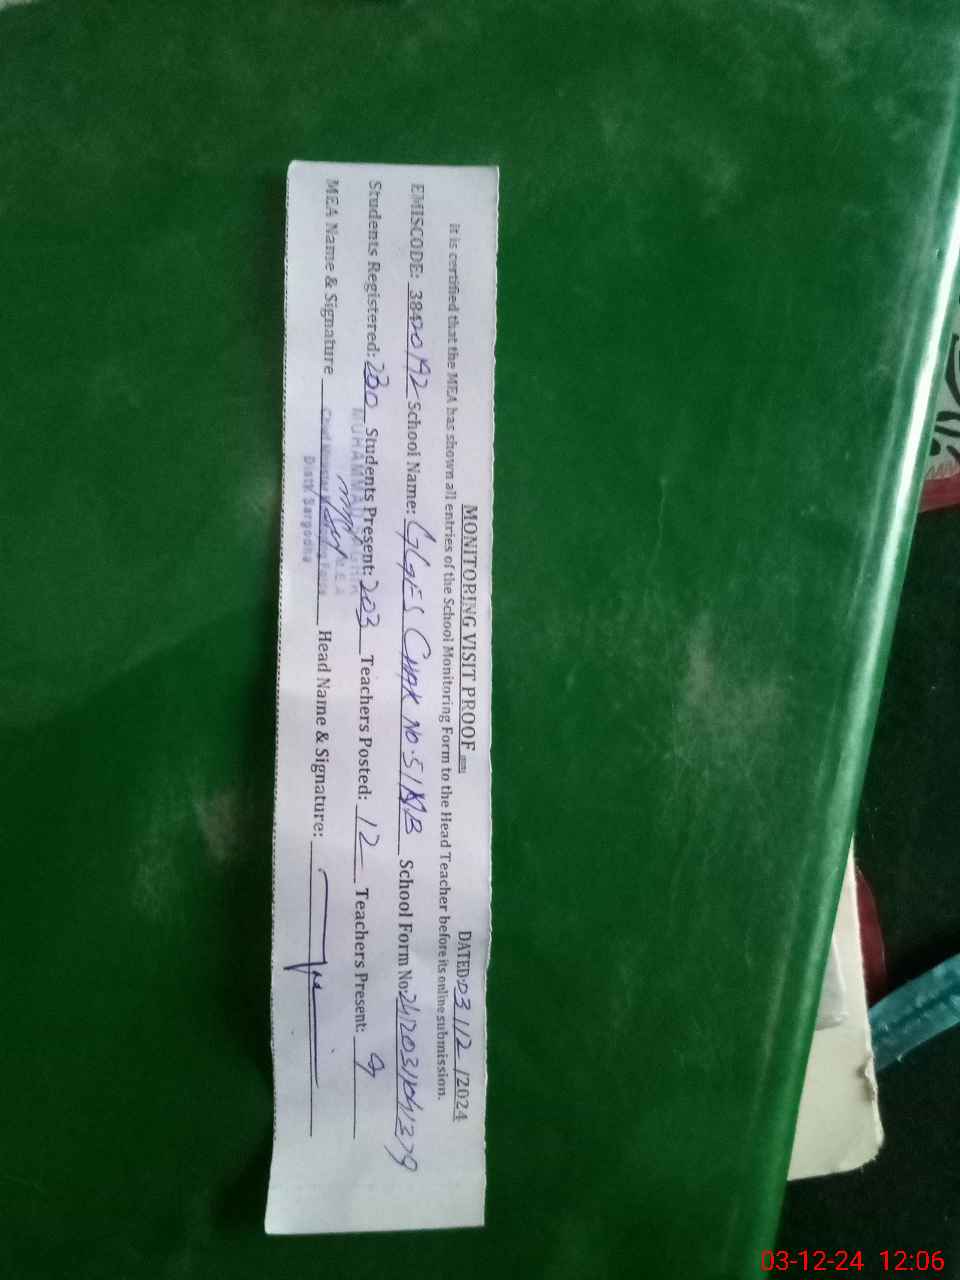 MONITORING VISIT PROOF
DATED: 03/12/2024
it is certified that the MEA has shown all entries of the School Monitoring Form to the Head Teacher before its online submission.
EMISCODE: 38400192 School Name: GGES CHAK No. 51 NB School Form No:
Students Registered: 230 Students Present: 203 Teachers Posted: 12 Teachers Present: 9
MUHAMMAD M.E.A
MEA Name & Signature Head Name & Signature:
Chief Minister Monitoring Force
Distt. Sargodha
03-12-24 12:06